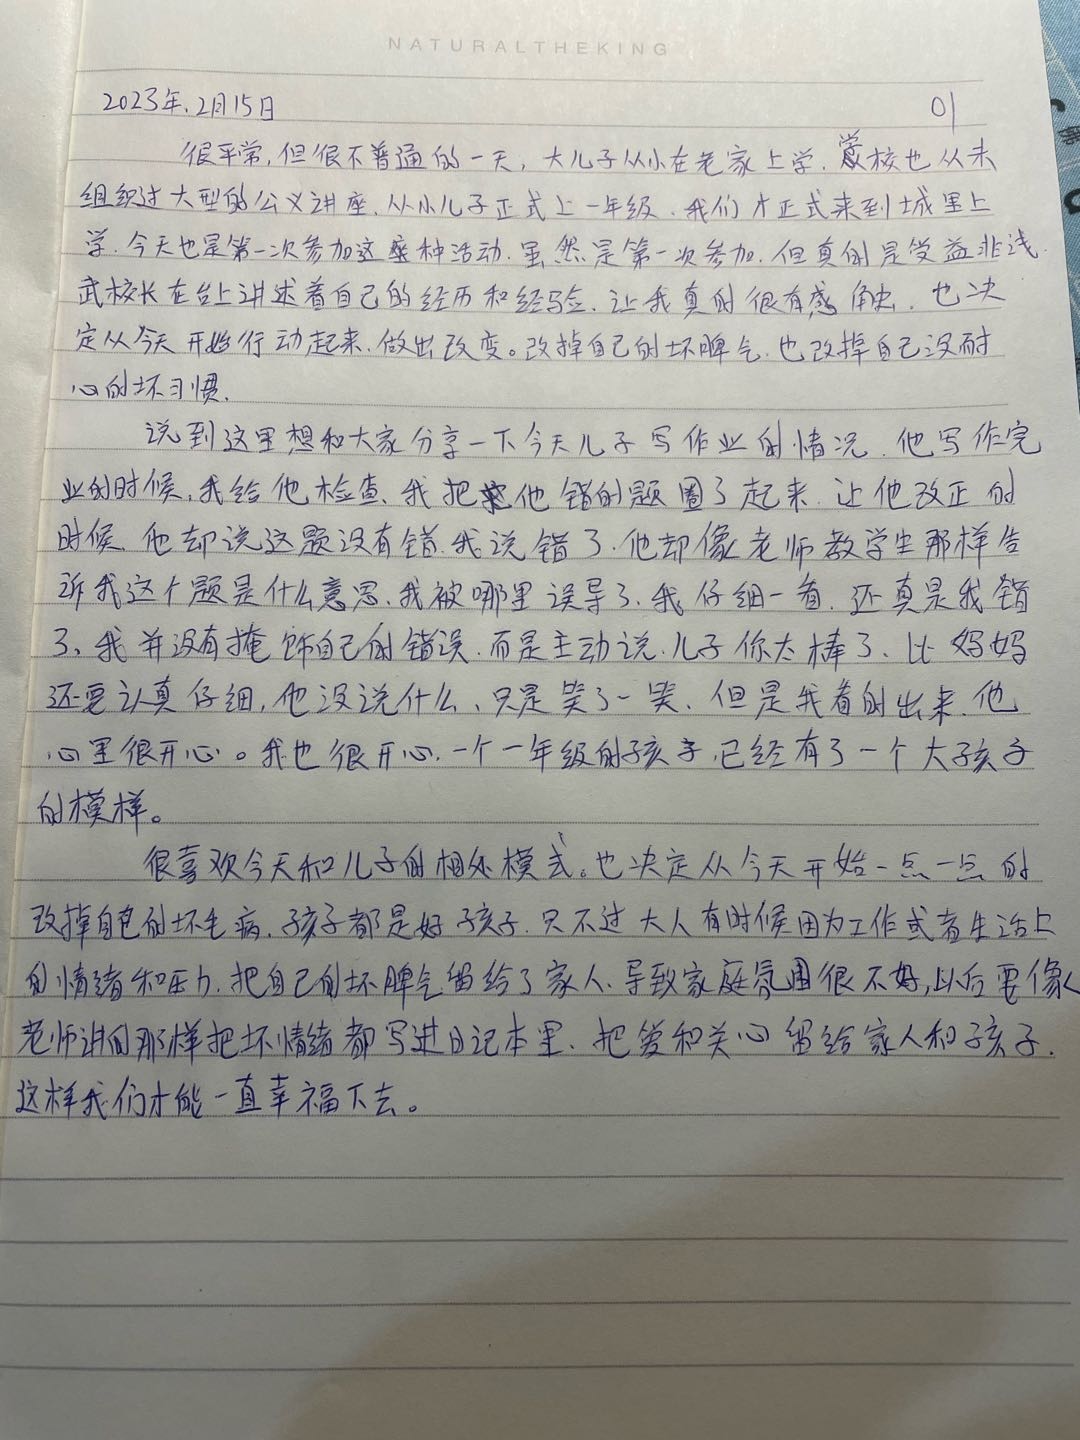 NATURALTHEKING
2023年.2月15日
01
很平常,但很不普通的一天,大儿子从小在老家上学.学校也从未
组织过大型的公义讲座.从小儿子正式上一年级.我们才正式来到城里上
学.今天也是第一次参加这种活动.虽然是第一次参加.但真的是受益非浅.
武校长在台上讲述着自己的经历和经验.让我真的很有感触.也决
定从今天开始行动起来.做出改变。改掉自己的坏脾气.也改掉自己没耐
心的坏习惯.
说到这里想和大家分享一下今天儿子写作业的情况.他写作完
业的时候,我给他检查、我把他错的题圈了起来.让他改正的
时候他却说这题没有错.我说错了.他却像老师教学生那样告
诉我这个题是什么意思.我被哪里误导了.我仔细一看.还真是我错
了、我并没有掩饰自己的错误.而是主动说.儿子你太棒了、比妈妈
还要认真仔细,他没说什么、只是笑了一笑.但是我看的出来.他
心里很开心。我也很开心.一个一年级的孩子.已经有了一个大孩子
的模样。
很喜欢今天和儿子的相处模式。也决定从今天开始一点一点的
改掉自己的坏毛病.孩子都是好孩子.只不过大人有时候因为工作或者生活上
的情绪和压力.把自己的坏脾气留给了家人.导致家庭氛围很不好,以后要像
老师讲的那样把坏情绪都写进日记本里.把爱和关心留给家人和孩子.
这样我们才能一直幸福下去。